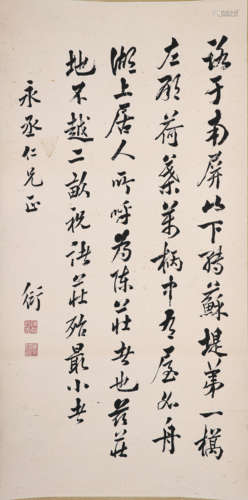 路于南屏山下轉蘇堤第一橋
左顧荷葉萬柄中有屋名舟
湖上居人所呼為陳莊者也茲莊
地不越二畝視諸莊殆最小者
永丞仁兄正
衍